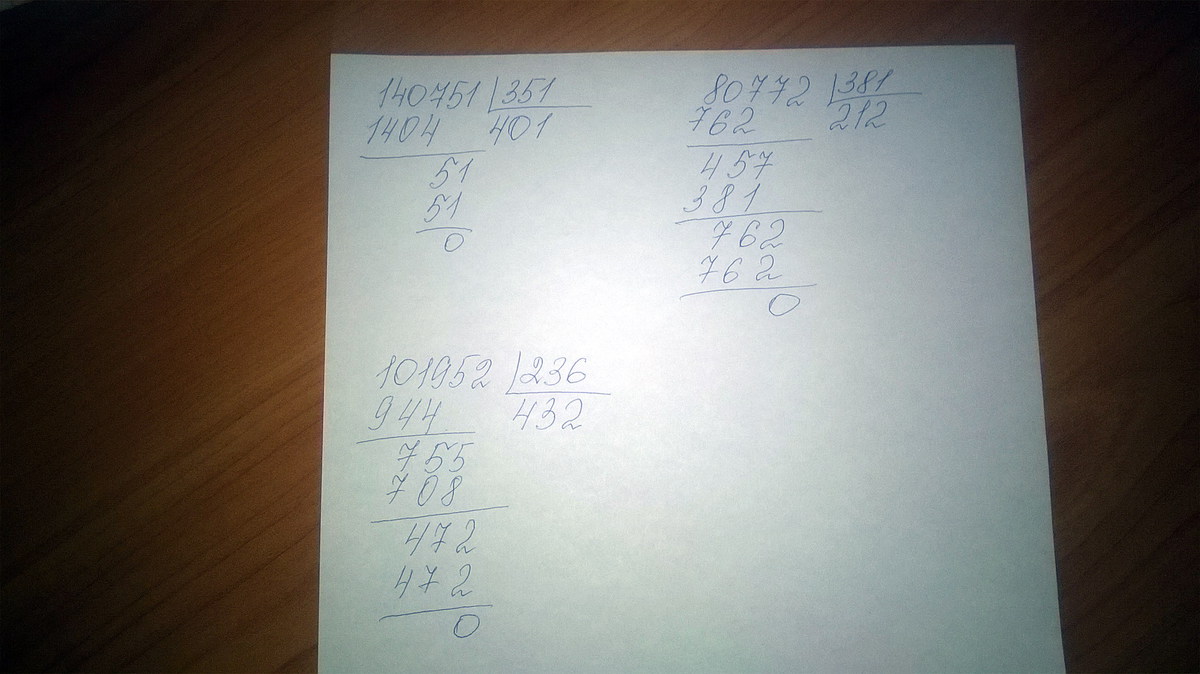 140751 351
1404 401
51
51
0
80772 381
762 212
457
381
762
762
0
101952 236
944 432
755
708
472
472
0